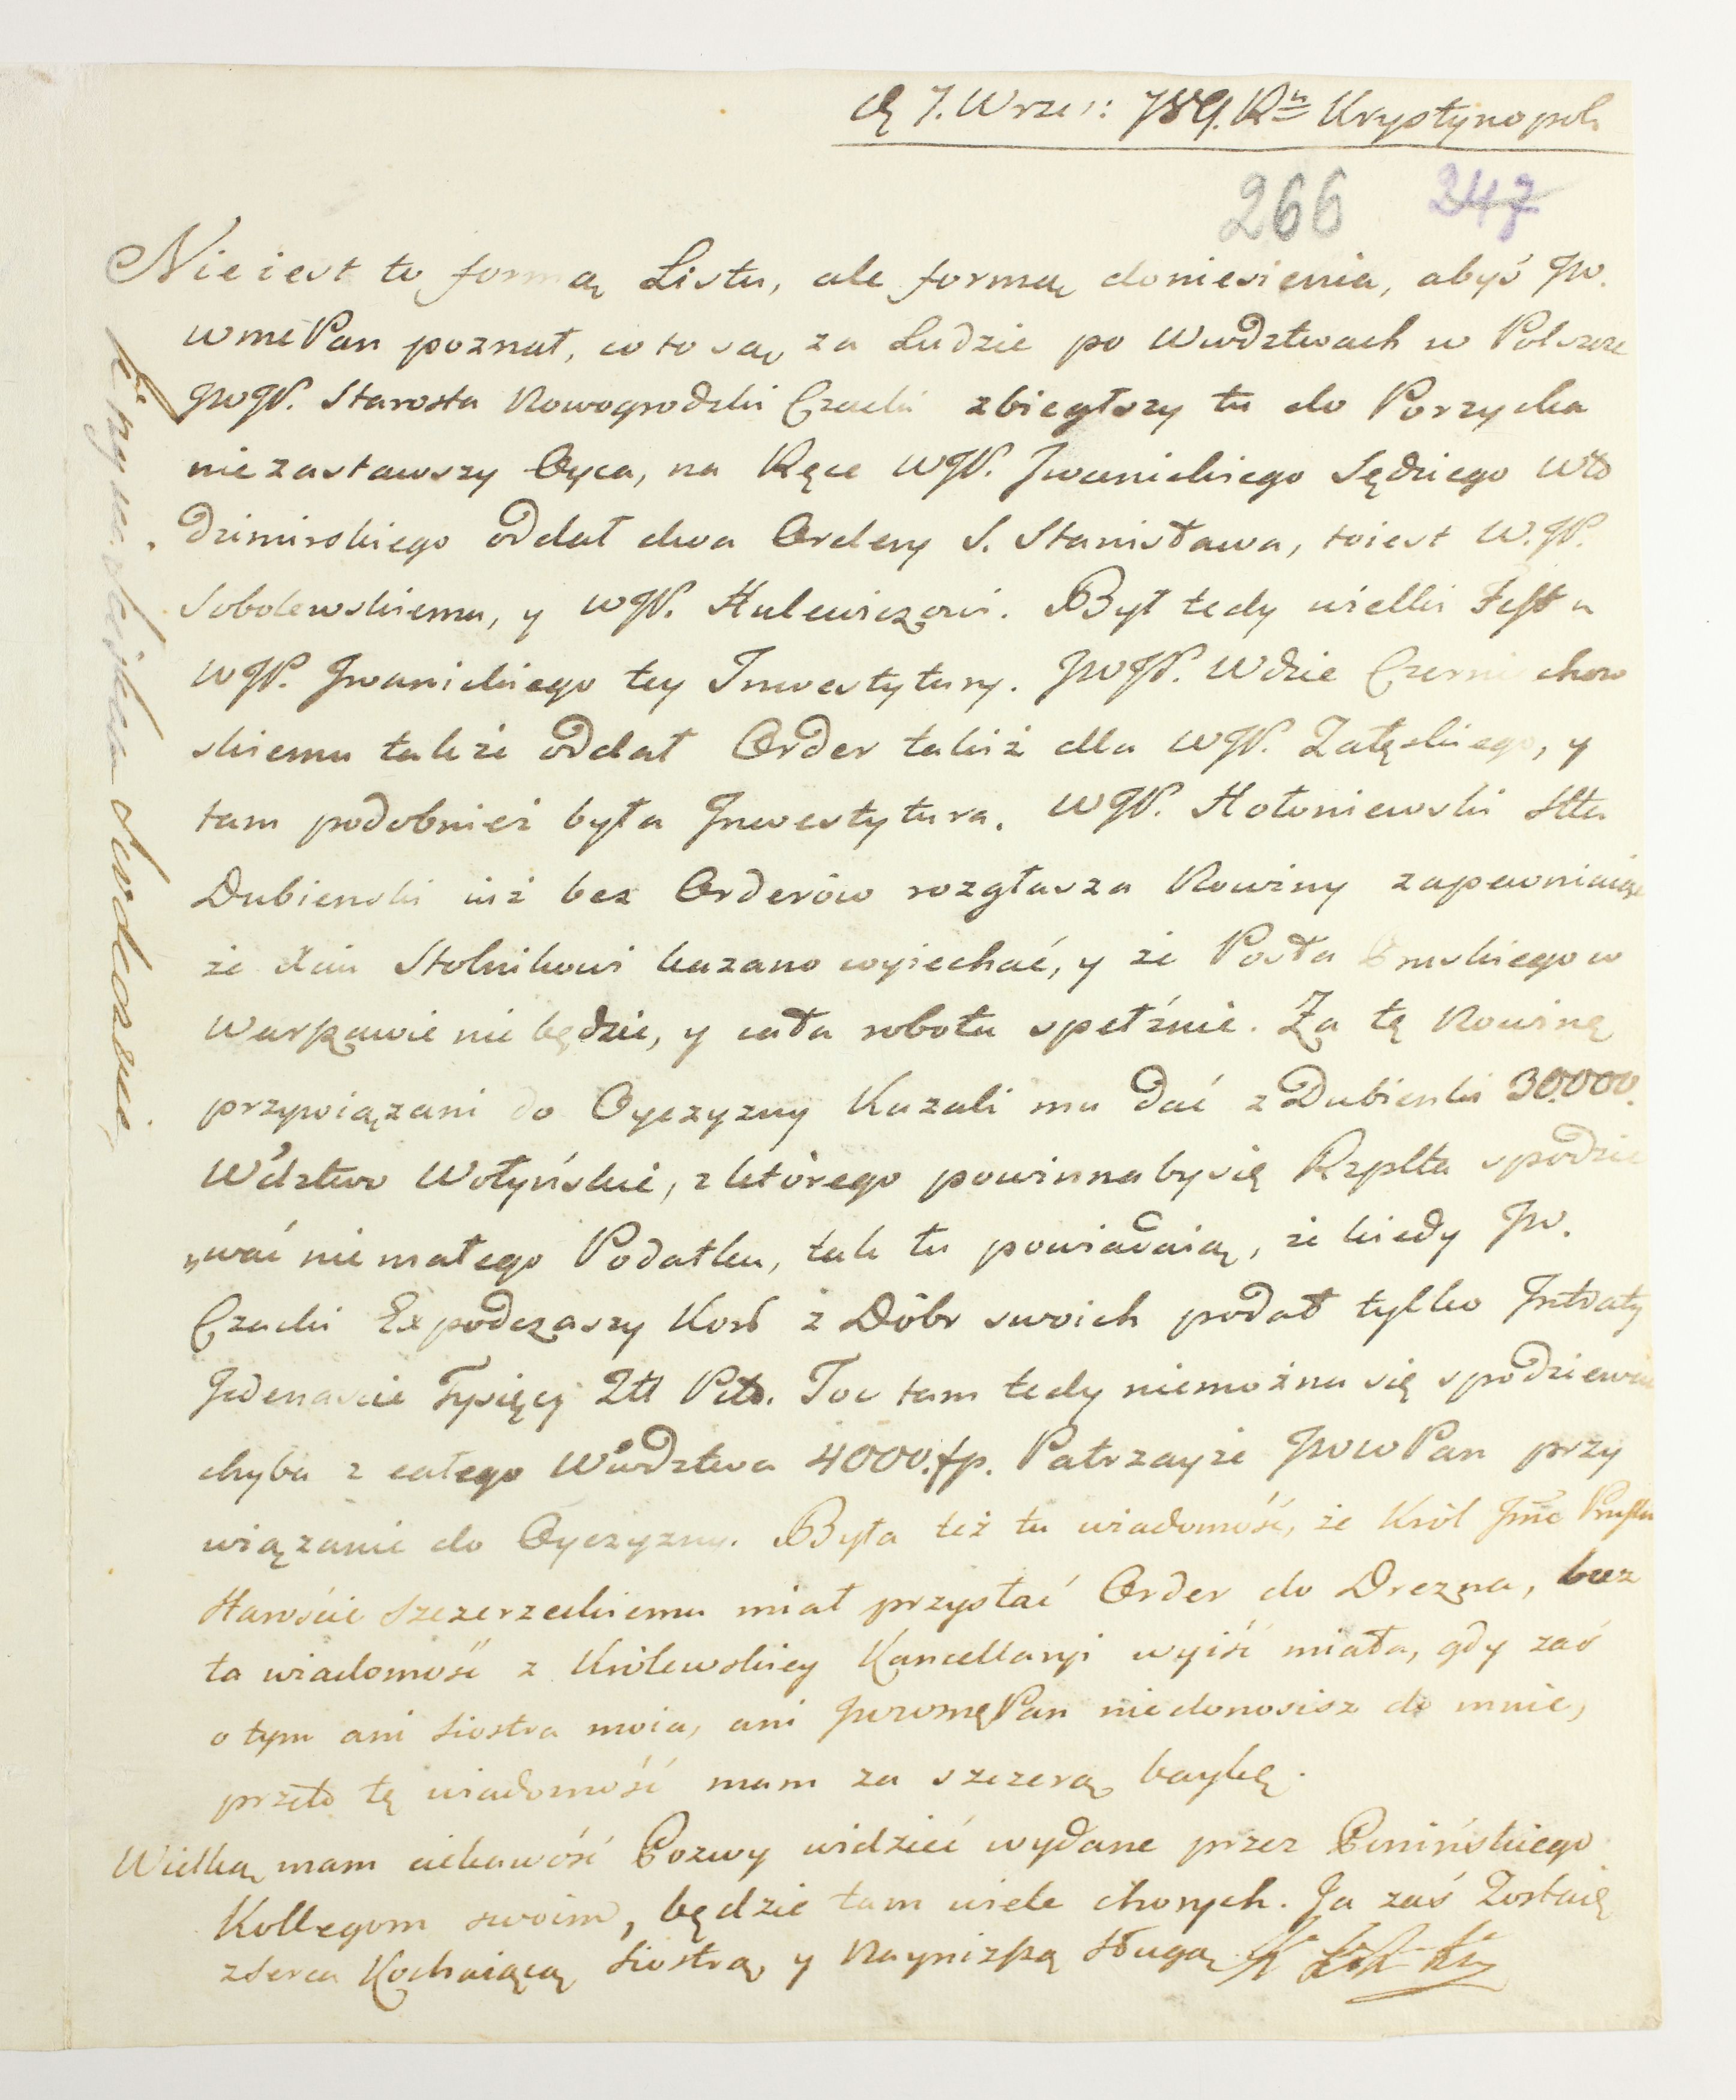 D. 7. Wrześ: 789. Rn Krystynopol.
266 247
Nie iest to formą Listu, ale formą doniesienia, abyś JW.
WmćPan poznał, co to są za Ludzie po Wwdztwach w Polszcze
JWJP. Starosta Nowogrodzki Czacki zbiegłszy tu do Porzycka
niezastawszy Oyca, na Ręce WJP. Jwanickiego Sędziego Wło
dzimirskiego oddał dwa Ordery S. Stanisława, toiest W.JP.
Sobolewskiemu, y WJP. Hulewiczowi. Był tedy wielki Fest u
WJP. Jwanickiego tey Inwestytury. JWJP. Wdzie Czerniechow
skiemu także oddał Order takiż dla WJP. Załęskiego, y
tam podobnież była Jnwestytura. WJP. Hołoniewski Stta
Dubienski iuż bez Orderów rozgłasza Nowiny zapewniaiąc
że Stolnikowi kazano wyiechać, y że Posła Pruskiego w
Warszawie nie będzie, y cała robota spełźnie. Za tę Nowinę
przywiązani do Oyczyzny Kazali mu dać z Dubienki 30.000.
Wdztwo Wołyńskie, z którego powinnaby się Rzplta spodzie
„wać nie małego Podatku, tak tu powiadaią, że kiedy JW.
Czacki Expodczaszy Kor z Dóbr swoich podał tylko Jntraty
Jedenaście Tysięcy Złł Pols. Toć tam tedy niemożna się spodziewać
chyba z całego Wwdztwa 4000.fp. Patrzayże JWWPan przy
wiązanie do Oyczyzny. Była też tu wiadomość, że Król Jmć Pruski
Staroście Szczerzeckiemu miał przysłać Order do Drezna, lecz
ta wiadomość z Królewskiey Kancellaryi wyiść miała, gdy zaś
o tym ani Siostra moia, ani JWWmćPan niedonosisz do mnie,
przeto tę wiadomość mam za szczerą baykę.
Wielką mam ciekawość Pozwy widzieć wydane przez Ponińskiego
Kollegom swoim, będzie tam wiele chorych. Ja zaś Zostaię
zserca Kochaiącą Siostrą y Nayniższą Sługą
serdecznie